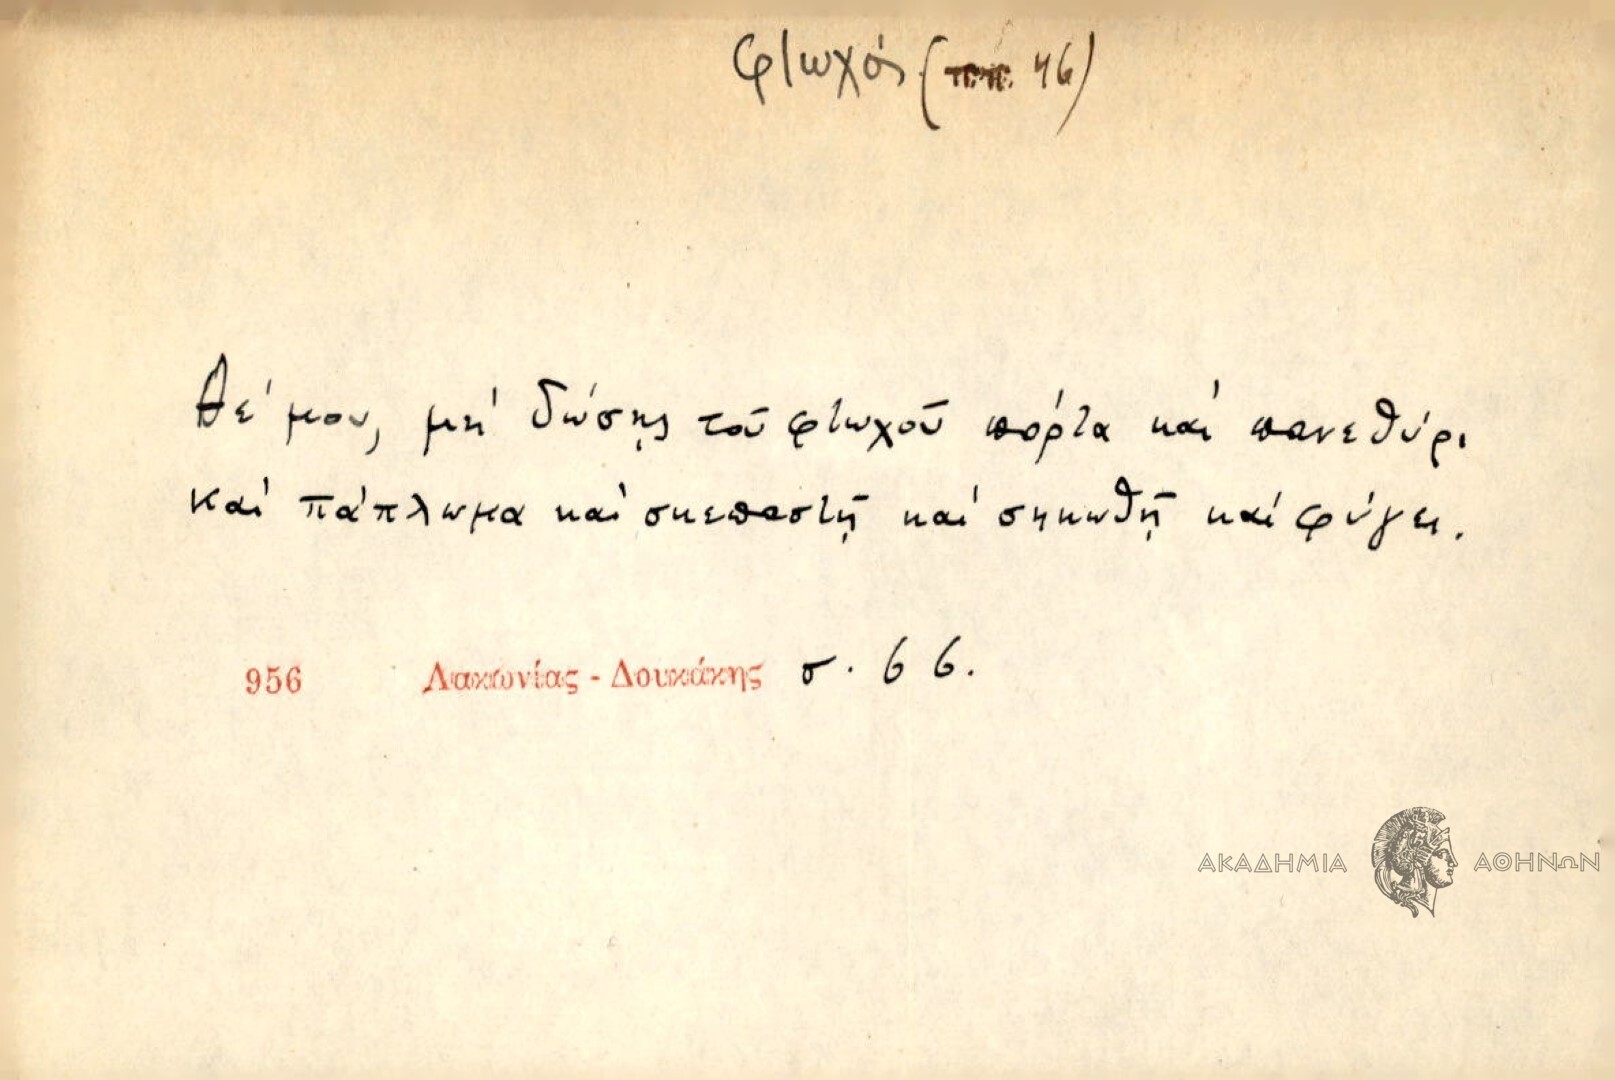 φτωχός ( 46)
Θέ μου, μή δώσης τοῦ φτωχοῦ πόρτα καί πανεθύρι
καί πάπλωμα καί σκεπαστῇ καί σηκωθῇ καί φύγει.
956 Λακωνίας - Δουκάκης σ. 66.
ΑΚΑΔΗΜΙΑ ΑΘΗΝΩΝ